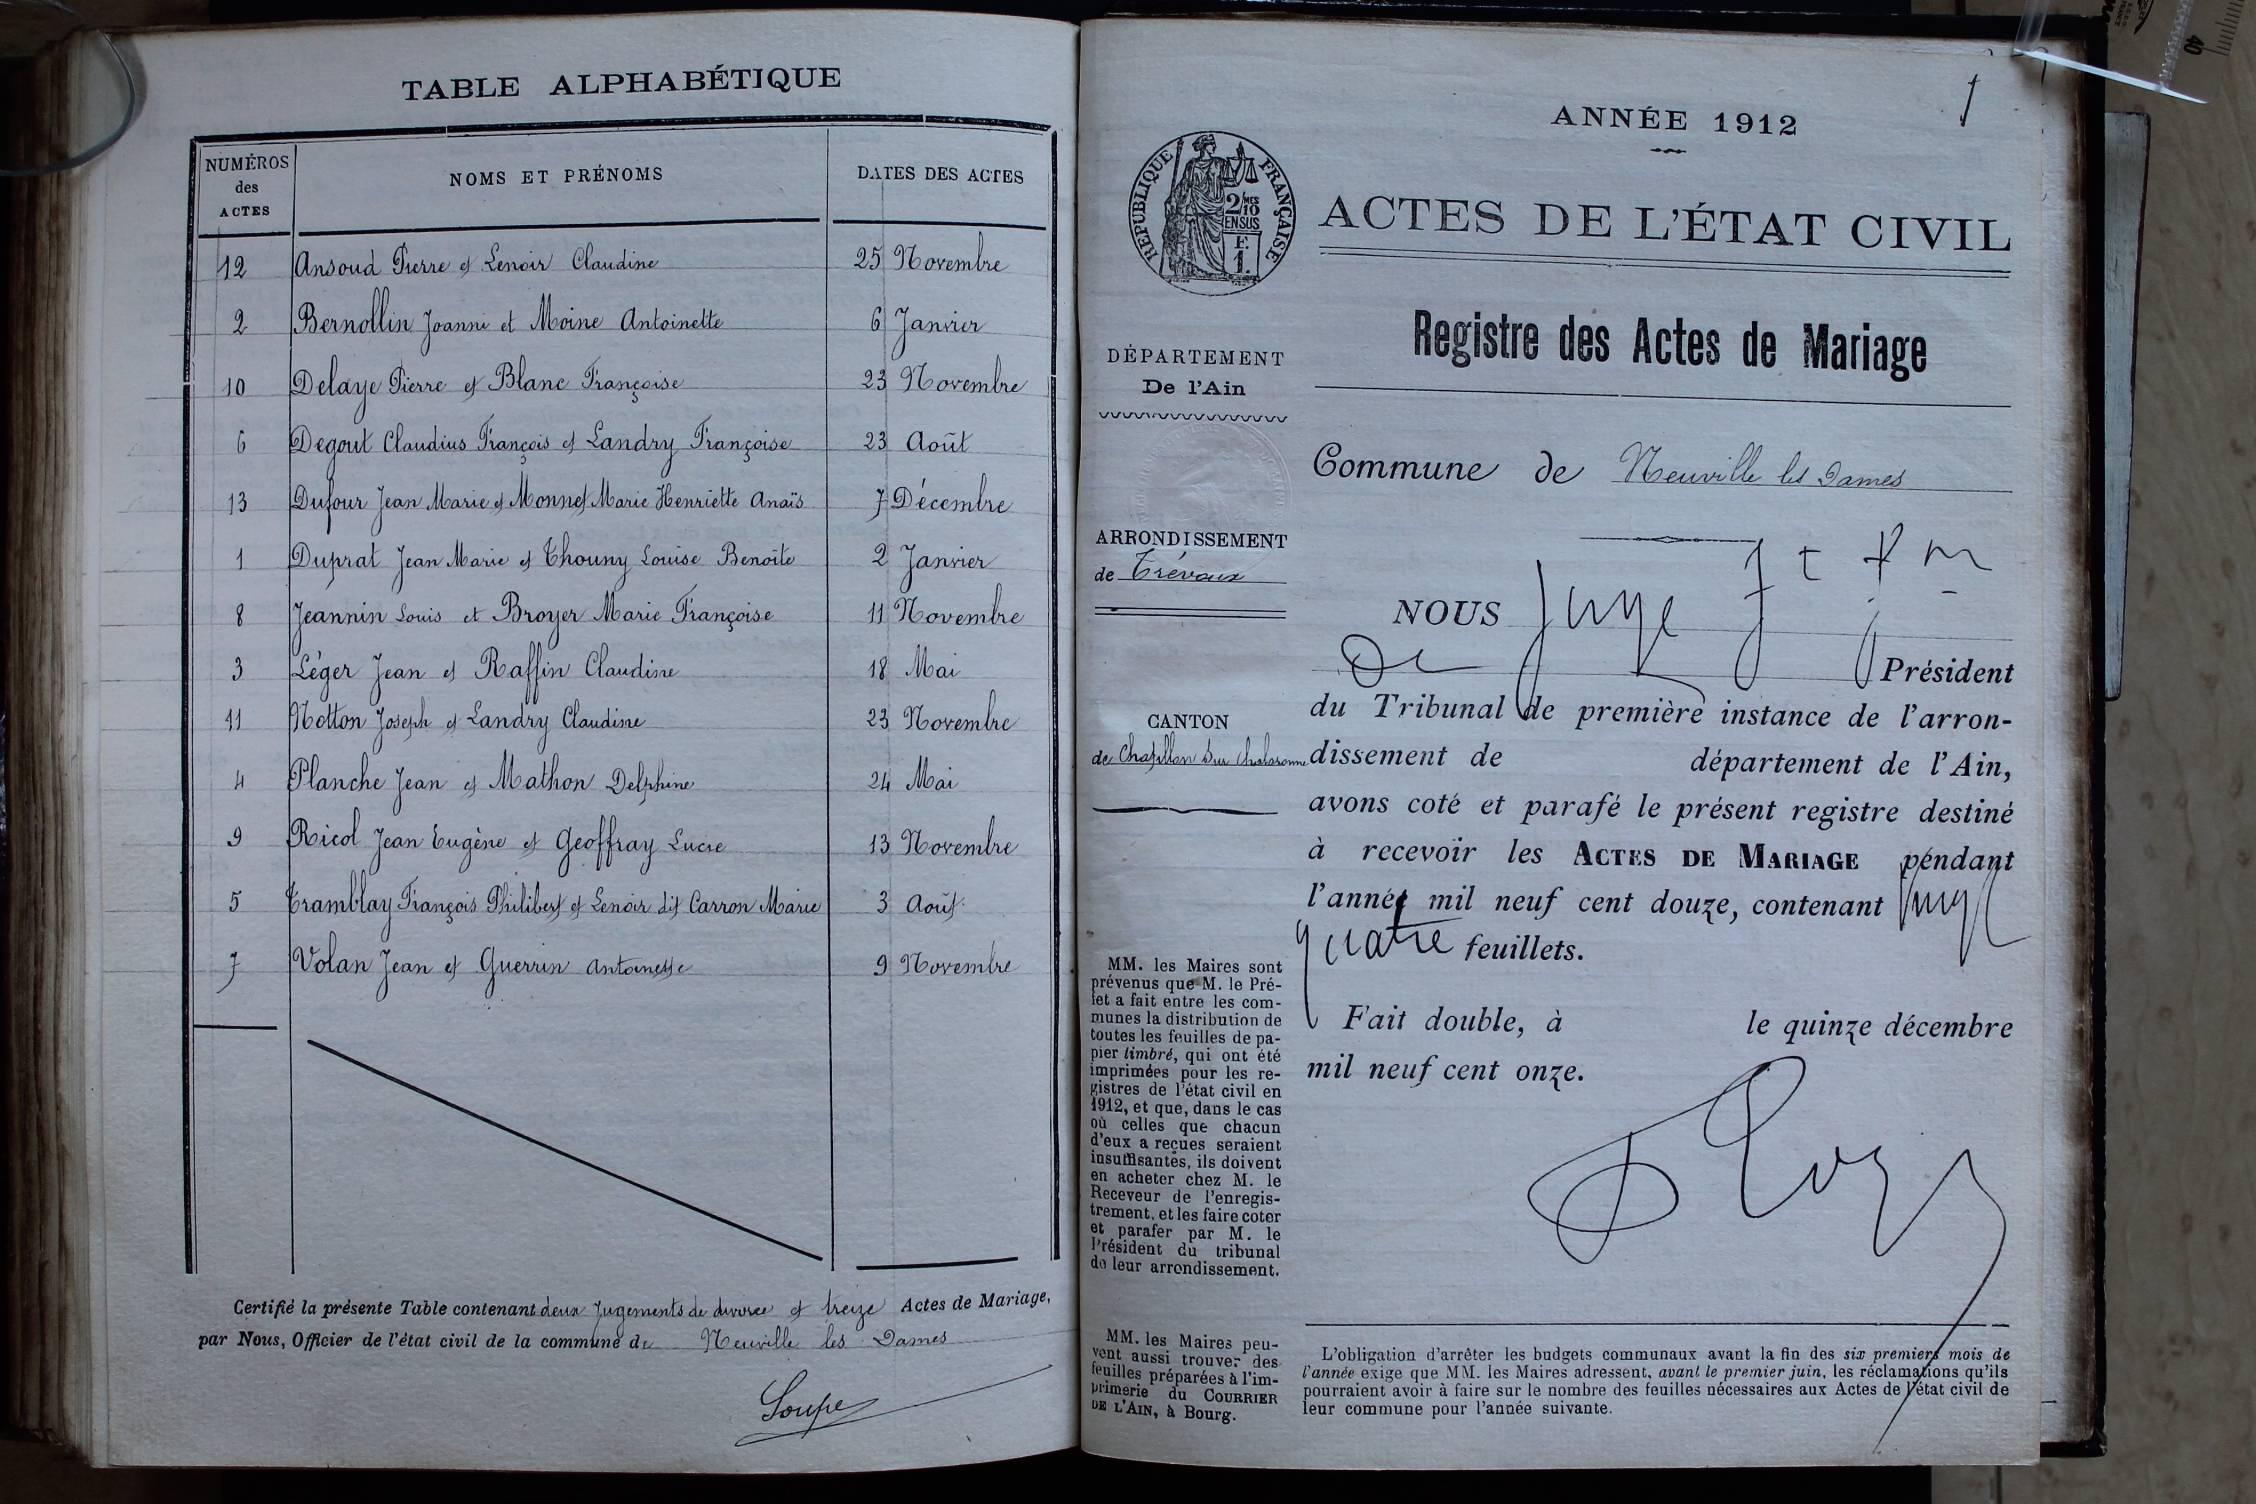 TABLE ALPHABÉTIQUE
NUMÉROS des ACTES NOMS ET PRÉNOMS DATES DES ACTES
12 Ansoud Pierre et Lenoir Claudine 25 Novembre
2 Bernollin Joanni et Moine Antoinette 6 Janvier
10 Delaye Pierre et Blanc Françoise 23 Novembre
6 Degout Claudius François et Landry Françoise 23 Août
13 Dufour Jean Marie et Monnet Marie Henriette Anaïs 7 Décembre
1 Duprat Jean Marie et Thouny Louise Benoîte 2 Janvier
8 Jeannin Louis et Broyer Marie Françoise 11 Novembre
3 Léger Jean et Raffin Claudine 18 Mai
11 Notton Joseph et Landry Claudine 23 Novembre
4 Planche Jean et Mathon Delphine 24 Mai
9 Ricol Jean Eugène et Geoffray Lucie 13 Novembre
5 Tramblay François Philibert et Lenoir dit Carron Marie 3 Août
7 Volan Jean et Guerrin Antoinette 9 Novembre
Certifié la présente Table contenant deux jugements de divorce et treize Actes de Mariage,
par Nous, Officier de l'état civil de la commune de Neuville les Dames
Soupe
1
ANNÉE 1912
RÉPUBLIQUE FRANÇAISE
2/MES 10
EN SUS
F.
1.
ACTES DE L'ÉTAT CIVIL
Registre des Actes de Mariage
DÉPARTEMENT
De l'Ain
Commune de Neuville les Dames
ARRONDISSEMENT
de Trévoux
CANTON
de Chatillon sur Chalaronne
NOUS Juge
Président
du Tribunal de première instance de l'arron-
dissement de département de l'Ain,
avons coté et parafé le présent registre destiné
à recevoir les ACTES DE MARIAGE pendant
l'année mil neuf cent douze, contenant vingt
quatre feuillets.
Fait double, à le quinze décembre
mil neuf cent onze.
MM. les Maires sont
prévenus que M. le Pré-
fet a fait entre les com-
munes la distribution de
toutes les feuilles de pa-
pier timbré, qui ont été
imprimées pour les re-
gistres de l'état civil en
1912, et que, dans le cas
où celles que chacun
d'eux a reçues seraient
insuffisantes, ils doivent
en acheter chez M. le
Receveur de l'enregis-
trement, et les faire coter
et parafer par M. le
Président du tribunal
de leur arrondissement.
MM. les Maires peu-
vent aussi trouver des
feuilles préparées à l'im-
primerie du COURRIER
DE L'AIN, à Bourg.
L'obligation d'arrêter les budgets communaux avant la fin des six premiers mois de
l'année exige que MM. les Maires adressent, avant le premier juin, les réclamations qu'ils
pourraient avoir à faire sur le nombre des feuilles nécessaires aux Actes de l'état civil de
leur commune pour l'année suivante.
40